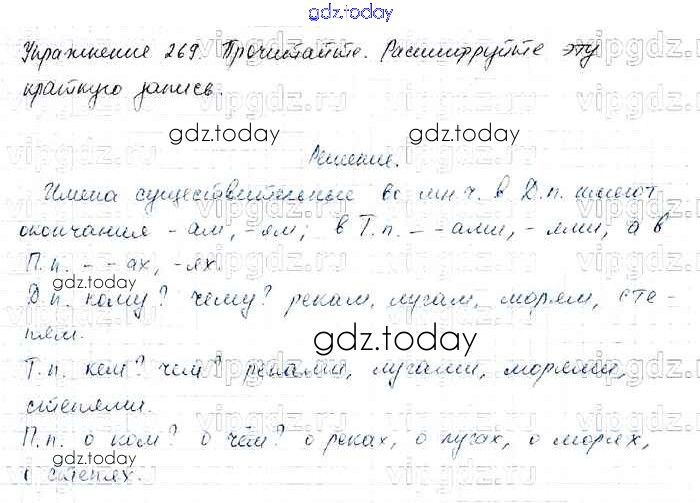 gdz.today
Упражнение 269. Прочитайте. Расшифруйте эту
краткую запись.
gdz.today gdz.today
Решение.
Имена существительные во мн.ч. в Д.п. имеют
окончания -ам, -ям; в Т.п. - -ами, -ями, а в
П.п. - -ах, -ях.
gdz.today
Д.п. кому? чему? рекам, лугам, морям, сте-
пям.
gdz.today
Т.п. кем? чем? реками, лугами, морями,
степями.
П.п. о ком? о чём? о реках, о лугах, о морях,
о степях.
gdz.today gdz.today